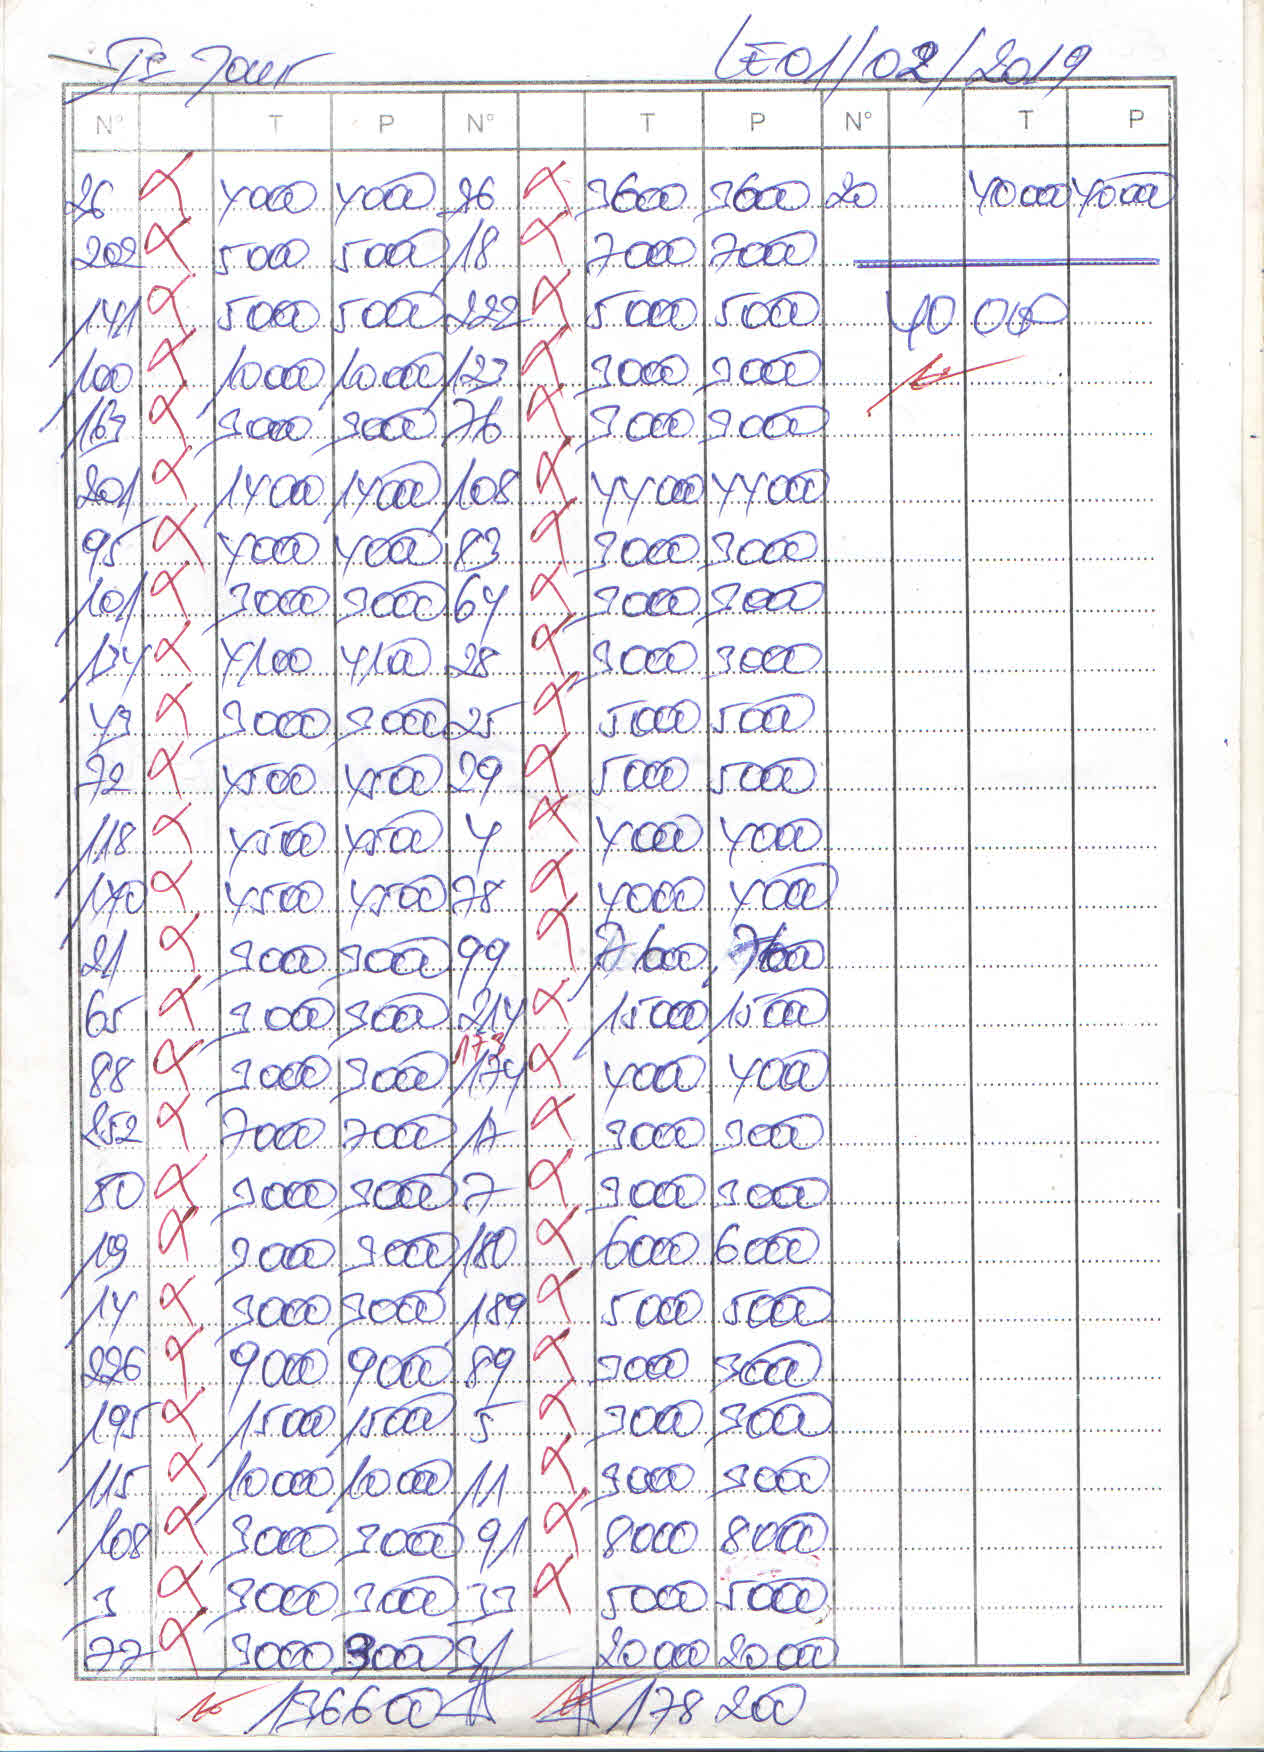 Je Jour LE 01/02/2019
N° T P N° T P N° T P
26 4000 4000 26 3600 3600 20 40000 40000
202 5000 5000 18 7000 7000
141 5000 5000 222 5000 5000 40 000
100 10000 10000 123 3000 3000
163 3000 3000 76 3000 3000
201 14000 14000 108 44000 44000
95 4000 4000 83 3000 3000
101 3000 3000 64 3000 3000
134 4100 4100 28 3000 3000
43 3000 3000 25 5000 5000
72 4500 4500 29 5000 5000
118 4500 4500 4 4000 4000
140 4500 4500 78 4000 4000
21 3000 3000 99 7600 7600
65 3000 3000 214 15000 15000
173
88 3000 3000 174 4000 4000
252 7000 7000 17 3000 3000
80 3000 3000 7 3000 3000
19 3000 3000 180 6000 6000
14 3000 3000 189 5000 5000
226 9000 9000 89 3000 3000
195 15000 15000 5 3000 3000
115 10000 10000 11 3000 3000
108 3000 3000 91 8000 8000
3 3000 3000 33 5000 5000
77 3000 3000 31 20000 20000
136600 178 200